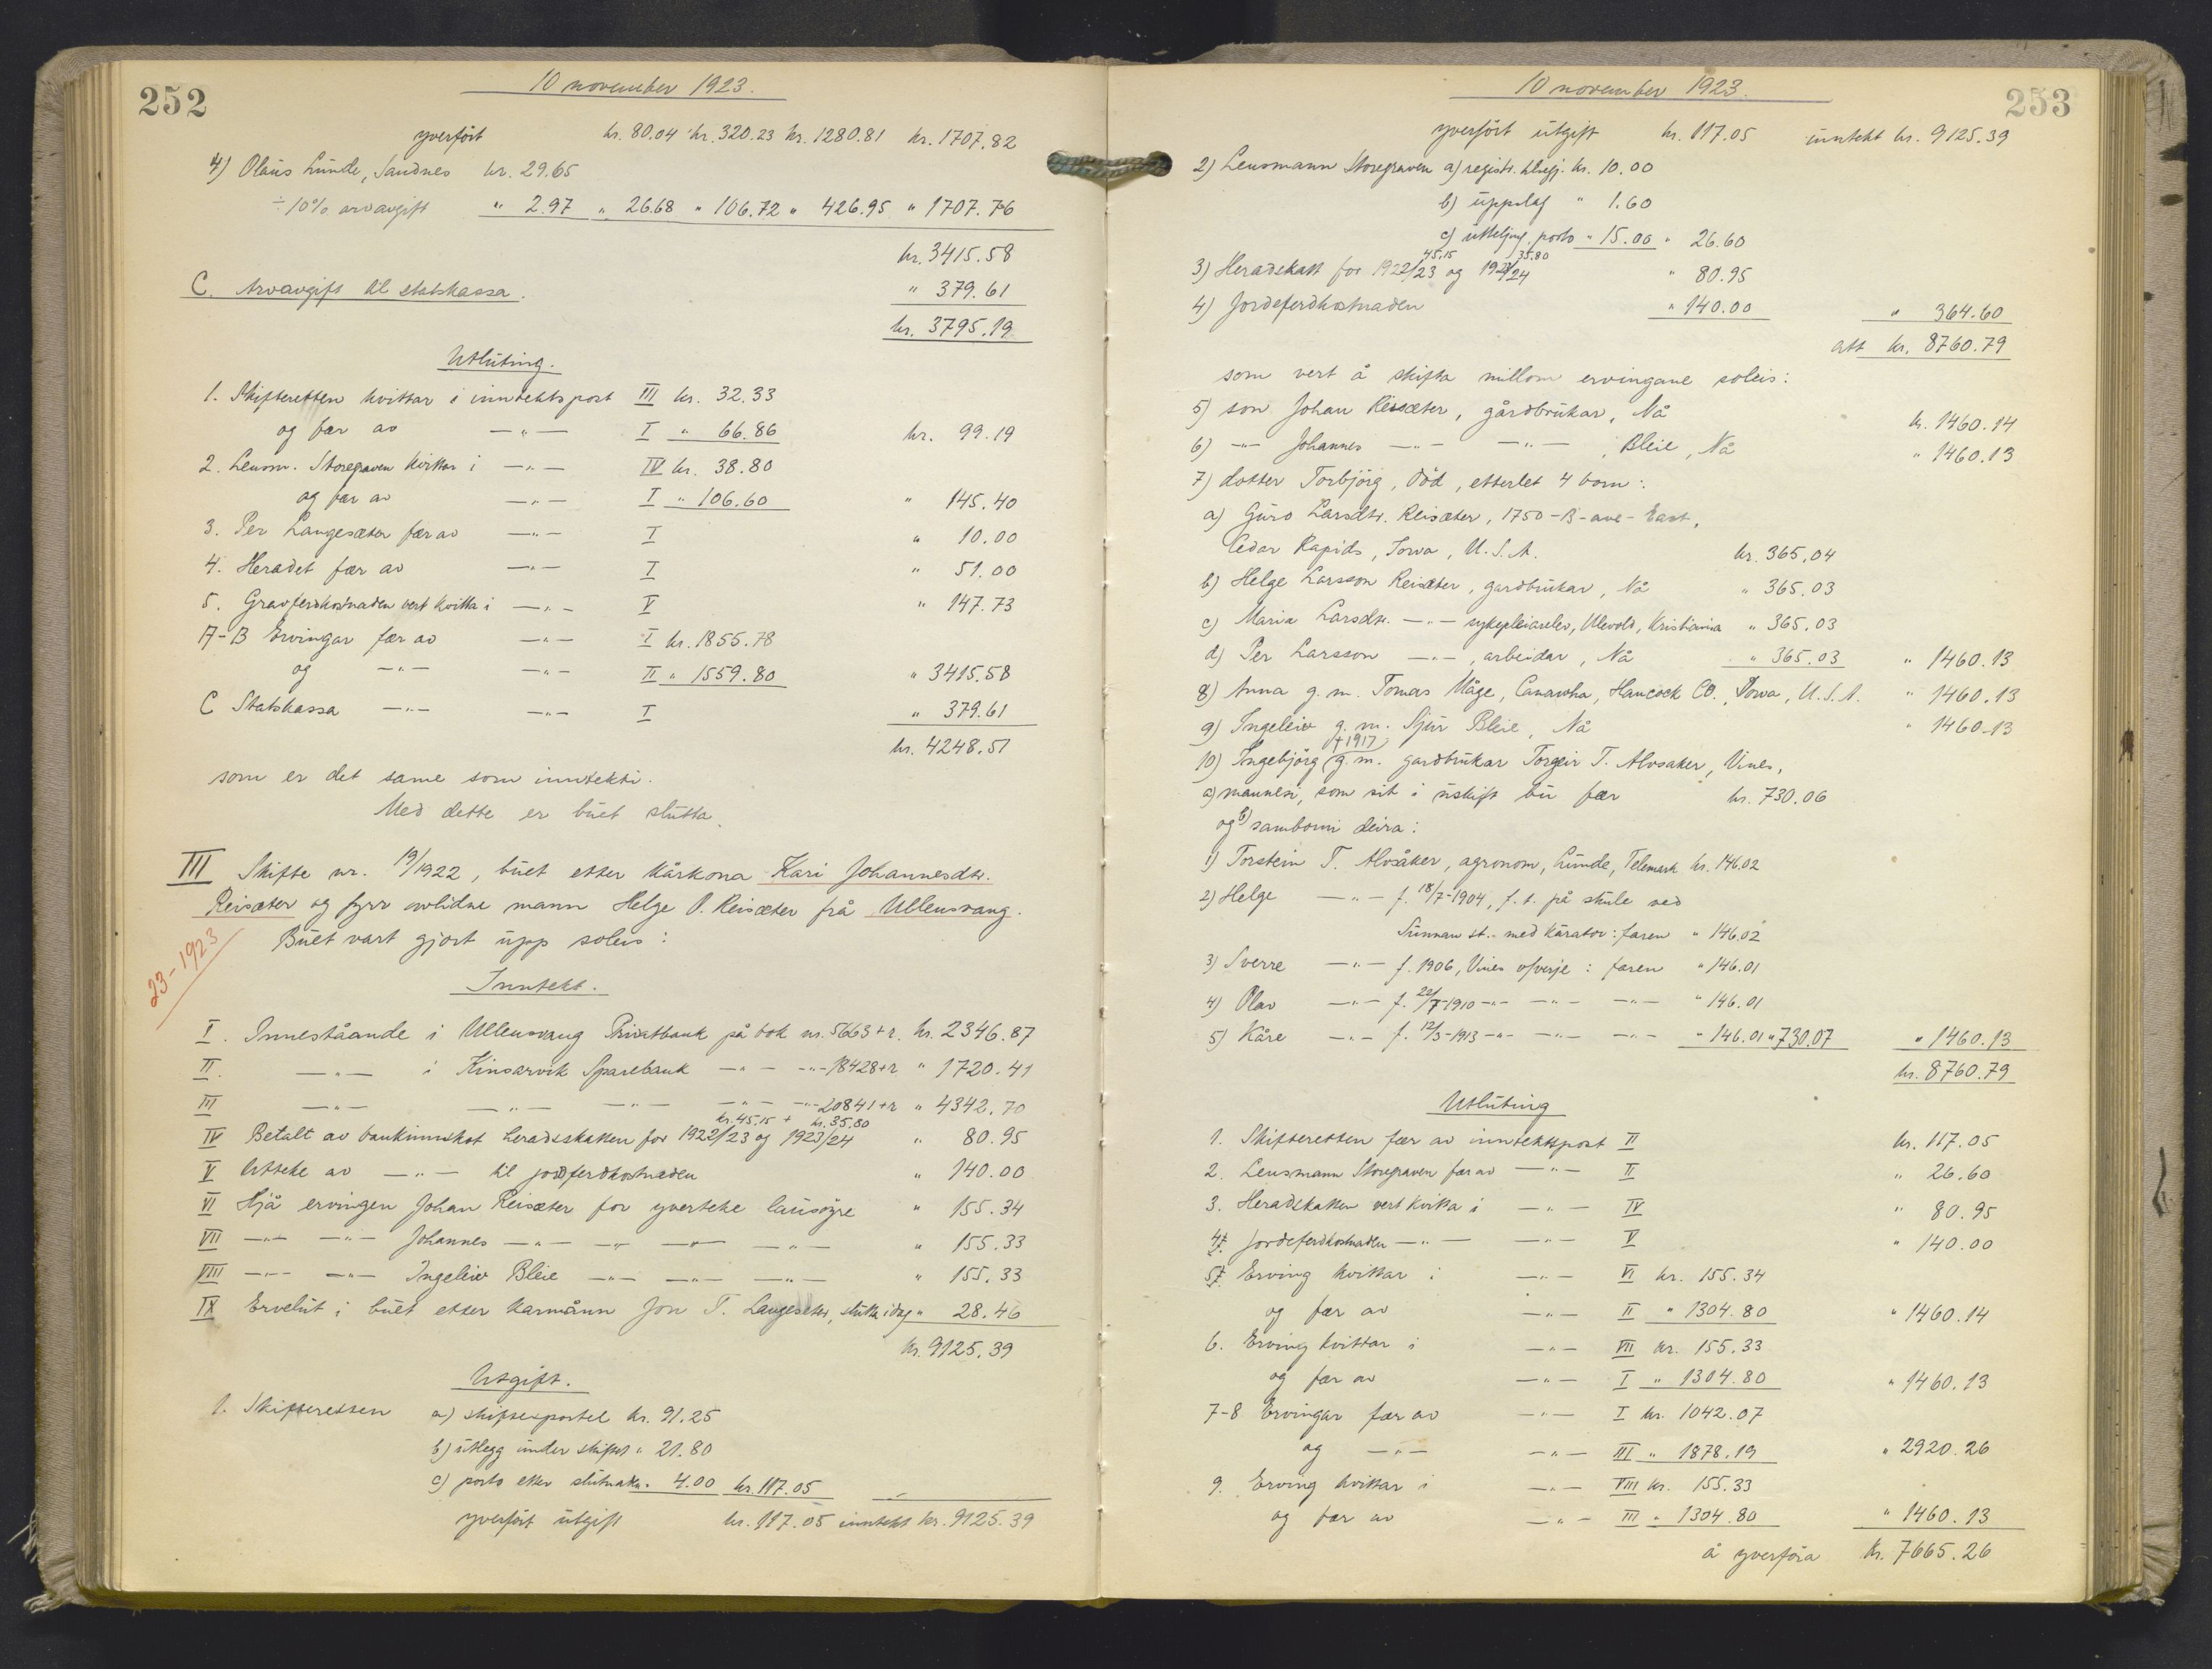 252
10 november 1923.
yverfört kr. 80.04 kr. 320.23 kr. 1280.81 kr. 1707.82
4) Olaus Lunde, Sandnes kr. 29.65
÷ 10% arvavgift " 2.97 " 26.68 " 106.72 " 426.95 " 1707.76
kr. 3415.58
C. Arvavgift til statskassa. " 379.61
kr. 3795.19
Utluting.
1. Skifteretten kvittar i inntektspost III kr. 32.33
og fær av —"— I " 66.86 kr. 99.19
2. Lensm. Storegraven kvittar i —"— IV kr. 38.80
og fær av —"— I " 106.60 " 145.40
3. Per Langesæter fær av —"— I " 10.00
4. Heradet fær av —"— I " 51.00
5. Gravferdkostnaden vert kvitta i —"— V " 147.73
A-B Ervingar fær av —"— I kr. 1855.78
og —"— —"— II " 1559.80 " 3415.58
C Statskassa —"— —"— I " 379.61
kr. 4248.51
som er det same som inntekti.
Med dette er buet slutta.
III Skifte nr. 19/1922, buet etter kårkona Kari Johannesdtr.
Reisæter og fyrr avlidne mann Helge O. Reisæter frå Ullensvang.
23-1923
Buet vart gjort upp soleis:
Inntekt.
I. Inneståande i Ullensvang Privatbank på bok nr. 5663 + r. kr. 2346.87
II. —"— i Kinsarvik Sparebank —"— —"— 18428 + r " 1720.41
III —"— —"— —"— —"— —"— 20841 + r " 4342.70
kr. 45.15 + kr. 35.80
IV Betalt av bankinnskot heradsskatten for 1922/23 og 1923/24 " 80.95
V Utteke av —"— til jordferdkostnaden " 140.00
VI Hjå ervingen Johan Reisæter for yverteke lausöyre " 155.34
VII —"— —"— Johannes —"— —"— —"— —"— " 155.33
VIII —"— —"— Ingeleiv Bleie —"— —"— —"— " 155.33
IX Ervelut i buet etter kårmann Jon T. Langesæter, slutta idag " 28.46
kr. 9125.39
Utgift.
1. Skifteretten a) skiftesportel kr. 91.25
b) utlegg under skiftet " 21.80
c) porto etter slutnaden " 4.00 kr. 117.05
yverfört utgift kr. 117.05 inntekt kr. 9125.39
253
10 november 1923.
yverfört utgift kr. 117.05 inntekt kr. 9125.39
2) Lensmann Storegraven a) registr. tilsegj. kr. 10.00
b) uppslag " 1.60
c) utteljing, porto " 15.00 " 26.60
45.15 35.80
3) Heradskatt for 1922/23 og 1923/24 " 80.95
4) Jordeferdkostnaden " 140.00 " 364.60
att kr. 8760.79
som vert å skifta millom ervingane soleis:
5) son Johan Reisæter, gårdbrukar, Nå kr. 1460.14
6) —"— Johannes —"— —"— , Bleie, Nå " 1460.13
7) dotter Torbjörg, död, etterlet 4 born:
a) Guro Larsdtr. Reisæter, 1750 - B - ave - East,
Cedar Rapids, Iowa, U.S.A. kr. 365.04
b) Helge Larsson Reisæter, gardbrukar, Nå " 365.03
c) Maria Larsdtr. —"— sykepleiarelev, Ulevold, Kristiania " 365.03
d) Per Larsson —"— , arbeidar, Nå " 365.03 " 1460.13
8) Anna g.m. Tomas Måge, Canawha, Hancock CO., Iowa, U.S.A. " 1460.13
9) Ingeleiv g.m. Sjur Bleie, Nå " 1460.13
† 1917
10) Ingebjörg g.m. gardbrukar Torgeir T. Alvsaker, Vines,
a) mannen, som sit i uskift bu fær kr. 730.06
og b) samborni deira:
1) Torstein T. Alvsåker, agronom, Lunde, Telemark kr. 146.02
2) Helge —"— f. 18/7-1904, f.t. på skule ved
Sunnan st. - med kurator: faren " 146.02
3) Sverre —"— f. 1906, Vines m/verje: faren " 146.01
4) Olav —"— f. 22/7-1910 —"— —"— —"— " 146.01
5) Kåre —"— f. 12/3-1913 —"— —"— —"— " 146.01 " 730.07 " 1460.13
kr. 8760.79
Utluting
1. Skifteretten fær av inntektspost II kr. 117.05
2. Lensmann Storegraven fær av —"— II " 26.60
3. Heradskatten vert kvitta i —"— IV " 80.95
4. Jordeferdkostnaden —"— —"— V " 140.00
5. Erving kvittar i —"— VI kr. 155.34
og fær av —"— II " 1304.80 " 1460.14
6. Erving kvittar i —"— VII kr. 155.33
og fær av —"— I " 1304.80 " 1460.13
7-8 Ervingar fær av —"— I kr. 1042.07
og —"— —"— III " 1878.19 " 2920.26
9. Erving kvittar i —"— VIII kr. 155.33
og fær av —"— III " 1304.80 " 1460.13
å yverföra kr. 7665.26